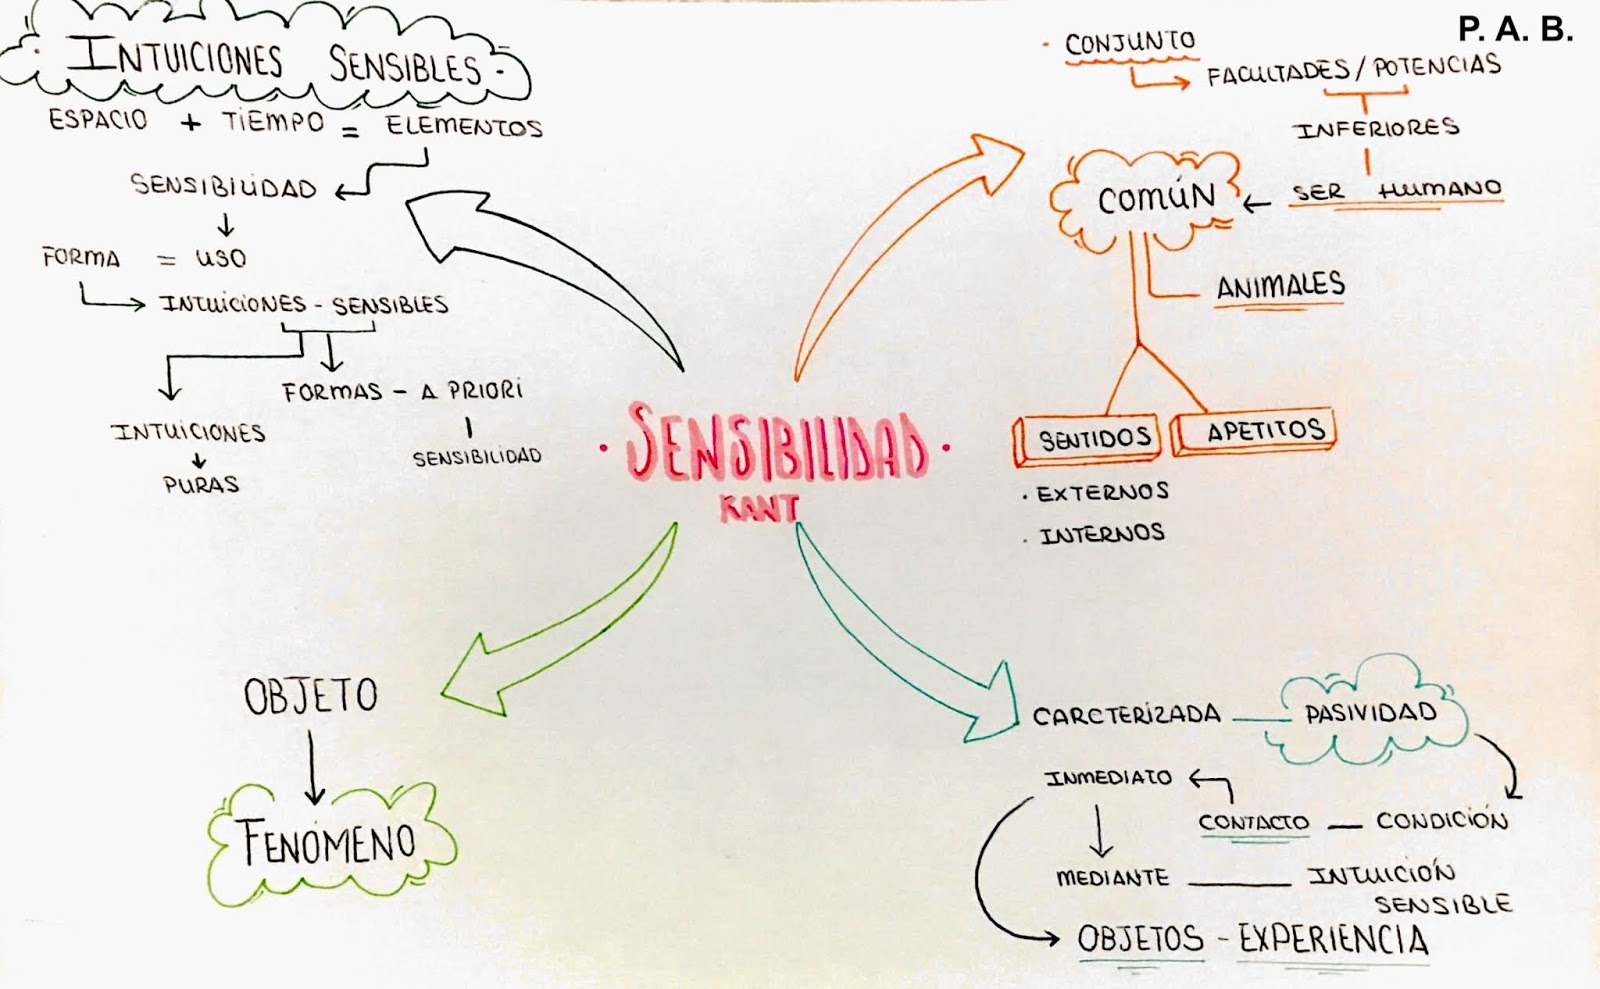 P. A. B.
INTUICIONES SENSIBLES
ESPACIO + TIEMPO = ELEMENTOS
SENSIBILIDAD
FORMA = USO
INTUICIONES - SENSIBLES
FORMAS - A PRIORI
SENSIBILIDAD
INTUICIONES
PURAS
CONJUNTO
FACULTADES / POTENCIAS
INFERIORES
SER HUMANO
COMÚN
ANIMALES
SENTIDOS
APETITOS
· EXTERNOS
· INTERNOS
· SENSIBILIDAD ·
KANT
OBJETO
FENÓMENO
CARCTERIZADA
PASIVIDAD
INMEDIATO
CONTACTO — CONDICIÓN
MEDIANTE — INTUICIÓN
SENSIBLE
OBJETOS - EXPERIENCIA